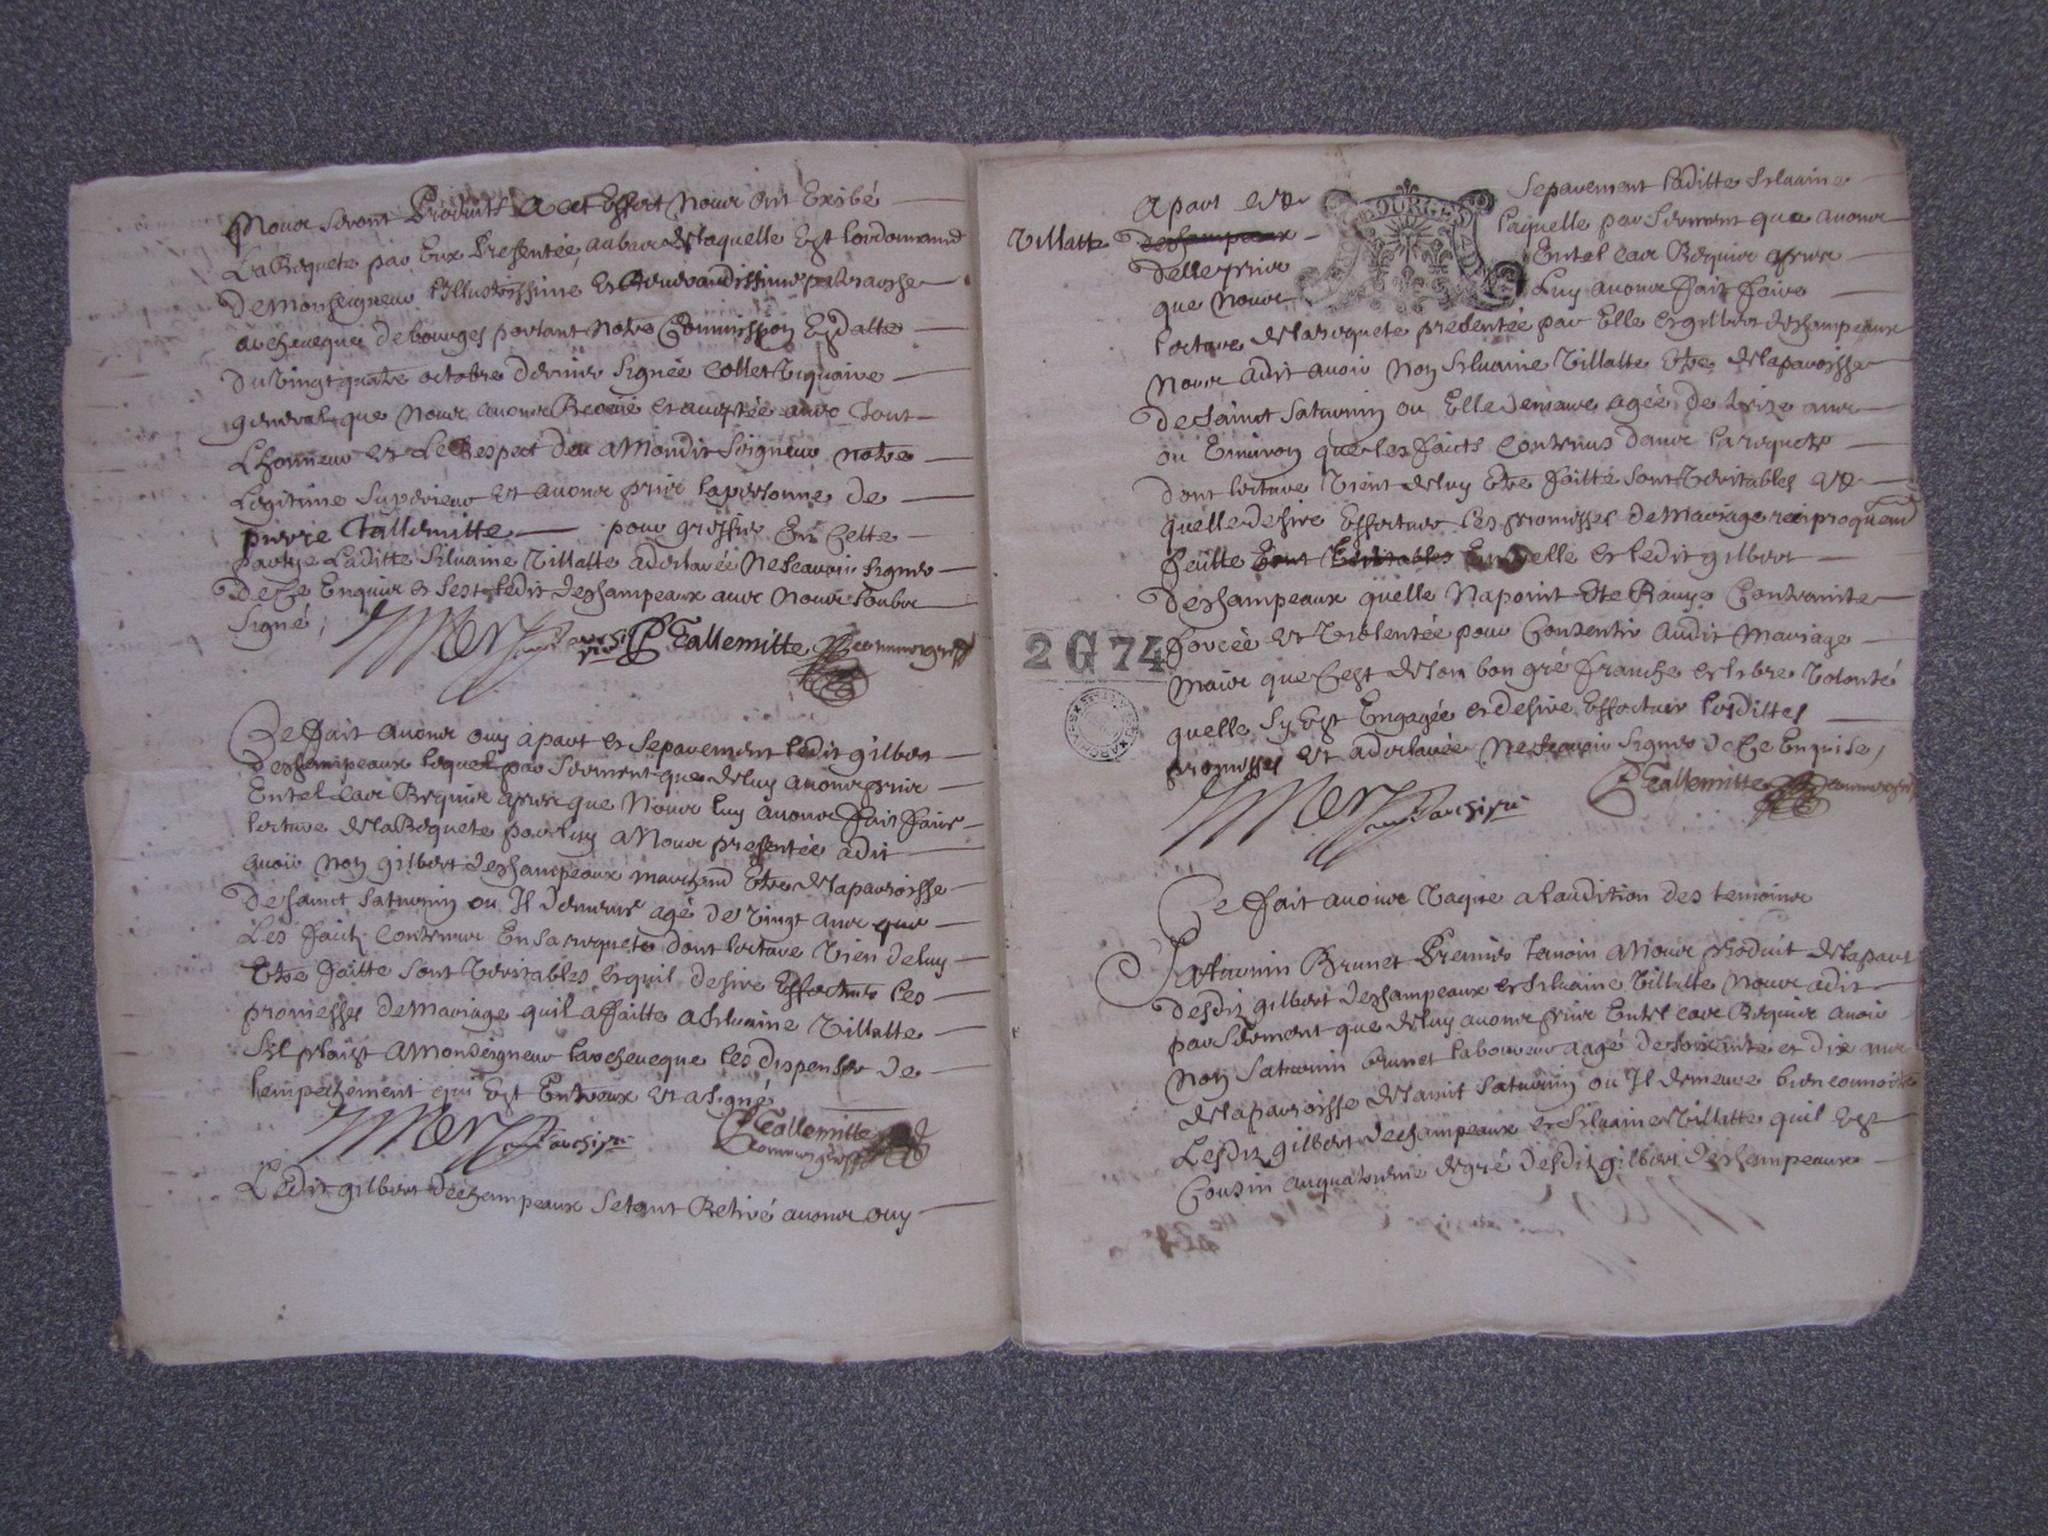 Nous seront Produits a cet Effect Nous ont Exibé
La Requete par Eux Presentée, au bas de laquelle Est lordonnance
De Monseigneur Lillustrissime et Reverandissime patriarche
archeuesque de bourges portant Notre Commission En datte
Du Vingt quatre octobre dernier Signée Collet Viquaire
general que Nous auons Receue et acceptée auec Tout
Lhonneur et Le Respect deu a Mondit Seigneur notre
Legitime Superieur et auons pris la personne de
pierre Tallemitte pour greffier En Cette
partye Laditte Siluaine Villatte a declarée Ne scauoir signer
De Ce Enquise et sest ledit deschampeaux auec Nous soubs
Signé,
P Tallemitte commis greff
Ce fait auons ouy apart et Separement ledit gilbert
deschampeaux lequel par serment que de luy auons pris
En tel cas Requis apres que Nous luy auons fait faire
lecture de la Requete par luy a Nous presentée a dit
auoir Nom gilbert deschampeaux marchand Etre de la parroisse
de sainct saturnin ou Il demeure agé de Vingt ans que
Les faits contenus En sa requete dont lecture Vien de luy
Etre faitte sont Veritables et quil desire Effectuer les
promesses de Mariage quil a faitte a Siluaine Villatte
Sil plaist a Monseigneur larcheueque les dispenser de
lempechement qui Est Entreux et a signé
P Tallemitte
commis greff
Ledit gilbert dechampeaux setant Retiré auons ouy
apart et Separement laditte Siluaine
Villatte deschampeaux laquelle par serment que auons
delle prise En tel cas Requis apres
que Nous Luy auons fait faire
lecture de la requete presentée par Elle et gilbert deschampeaux
Nous a dit auoir Nom Siluaine Villatte Etre de la paroisse
de sainct saturnin ou Elle demeure agée de treize ans
ou Enuiron que les faicts contenus dans la requete
dont lecture Vient de luy Etre faitte sont Veritables et
quelle desire Effectuer les promesses de Mariage reciproquement
faitte Entre elle et ledit gilbert
deschampeaux quelle Na point Ete Rauye Contrainte
forcée et Violentée pour Consentir audit Mariage
2 G 74
Mais que Cest de son bon gré franche et libre Volonté
quelle sy Est Engagée et desire Effectuer lesdittes
promesses et a declarée Ne scauoir signer de Ce Enquise,
P Tallemitte commis greff
Ce fait auons Vaqué a laudition des temoins
Saturnin Brunet Premier temoin a Nous produit de la part
desdits gilbert deschampeaux et Siluaine Villatte Nous a dit
par serment que de luy auons pris En tel cas Requis auoir
Nom Saturnin brunet laboureur agé de soixante et dix ans
de la parroisse de saint Saturnin ou Il demeure bien connoitre
Lesdits gilbert dechampeaux et Siluaine Villatte quil Est
Cousin au quatrieme degré desdits gilbert deschampeaux